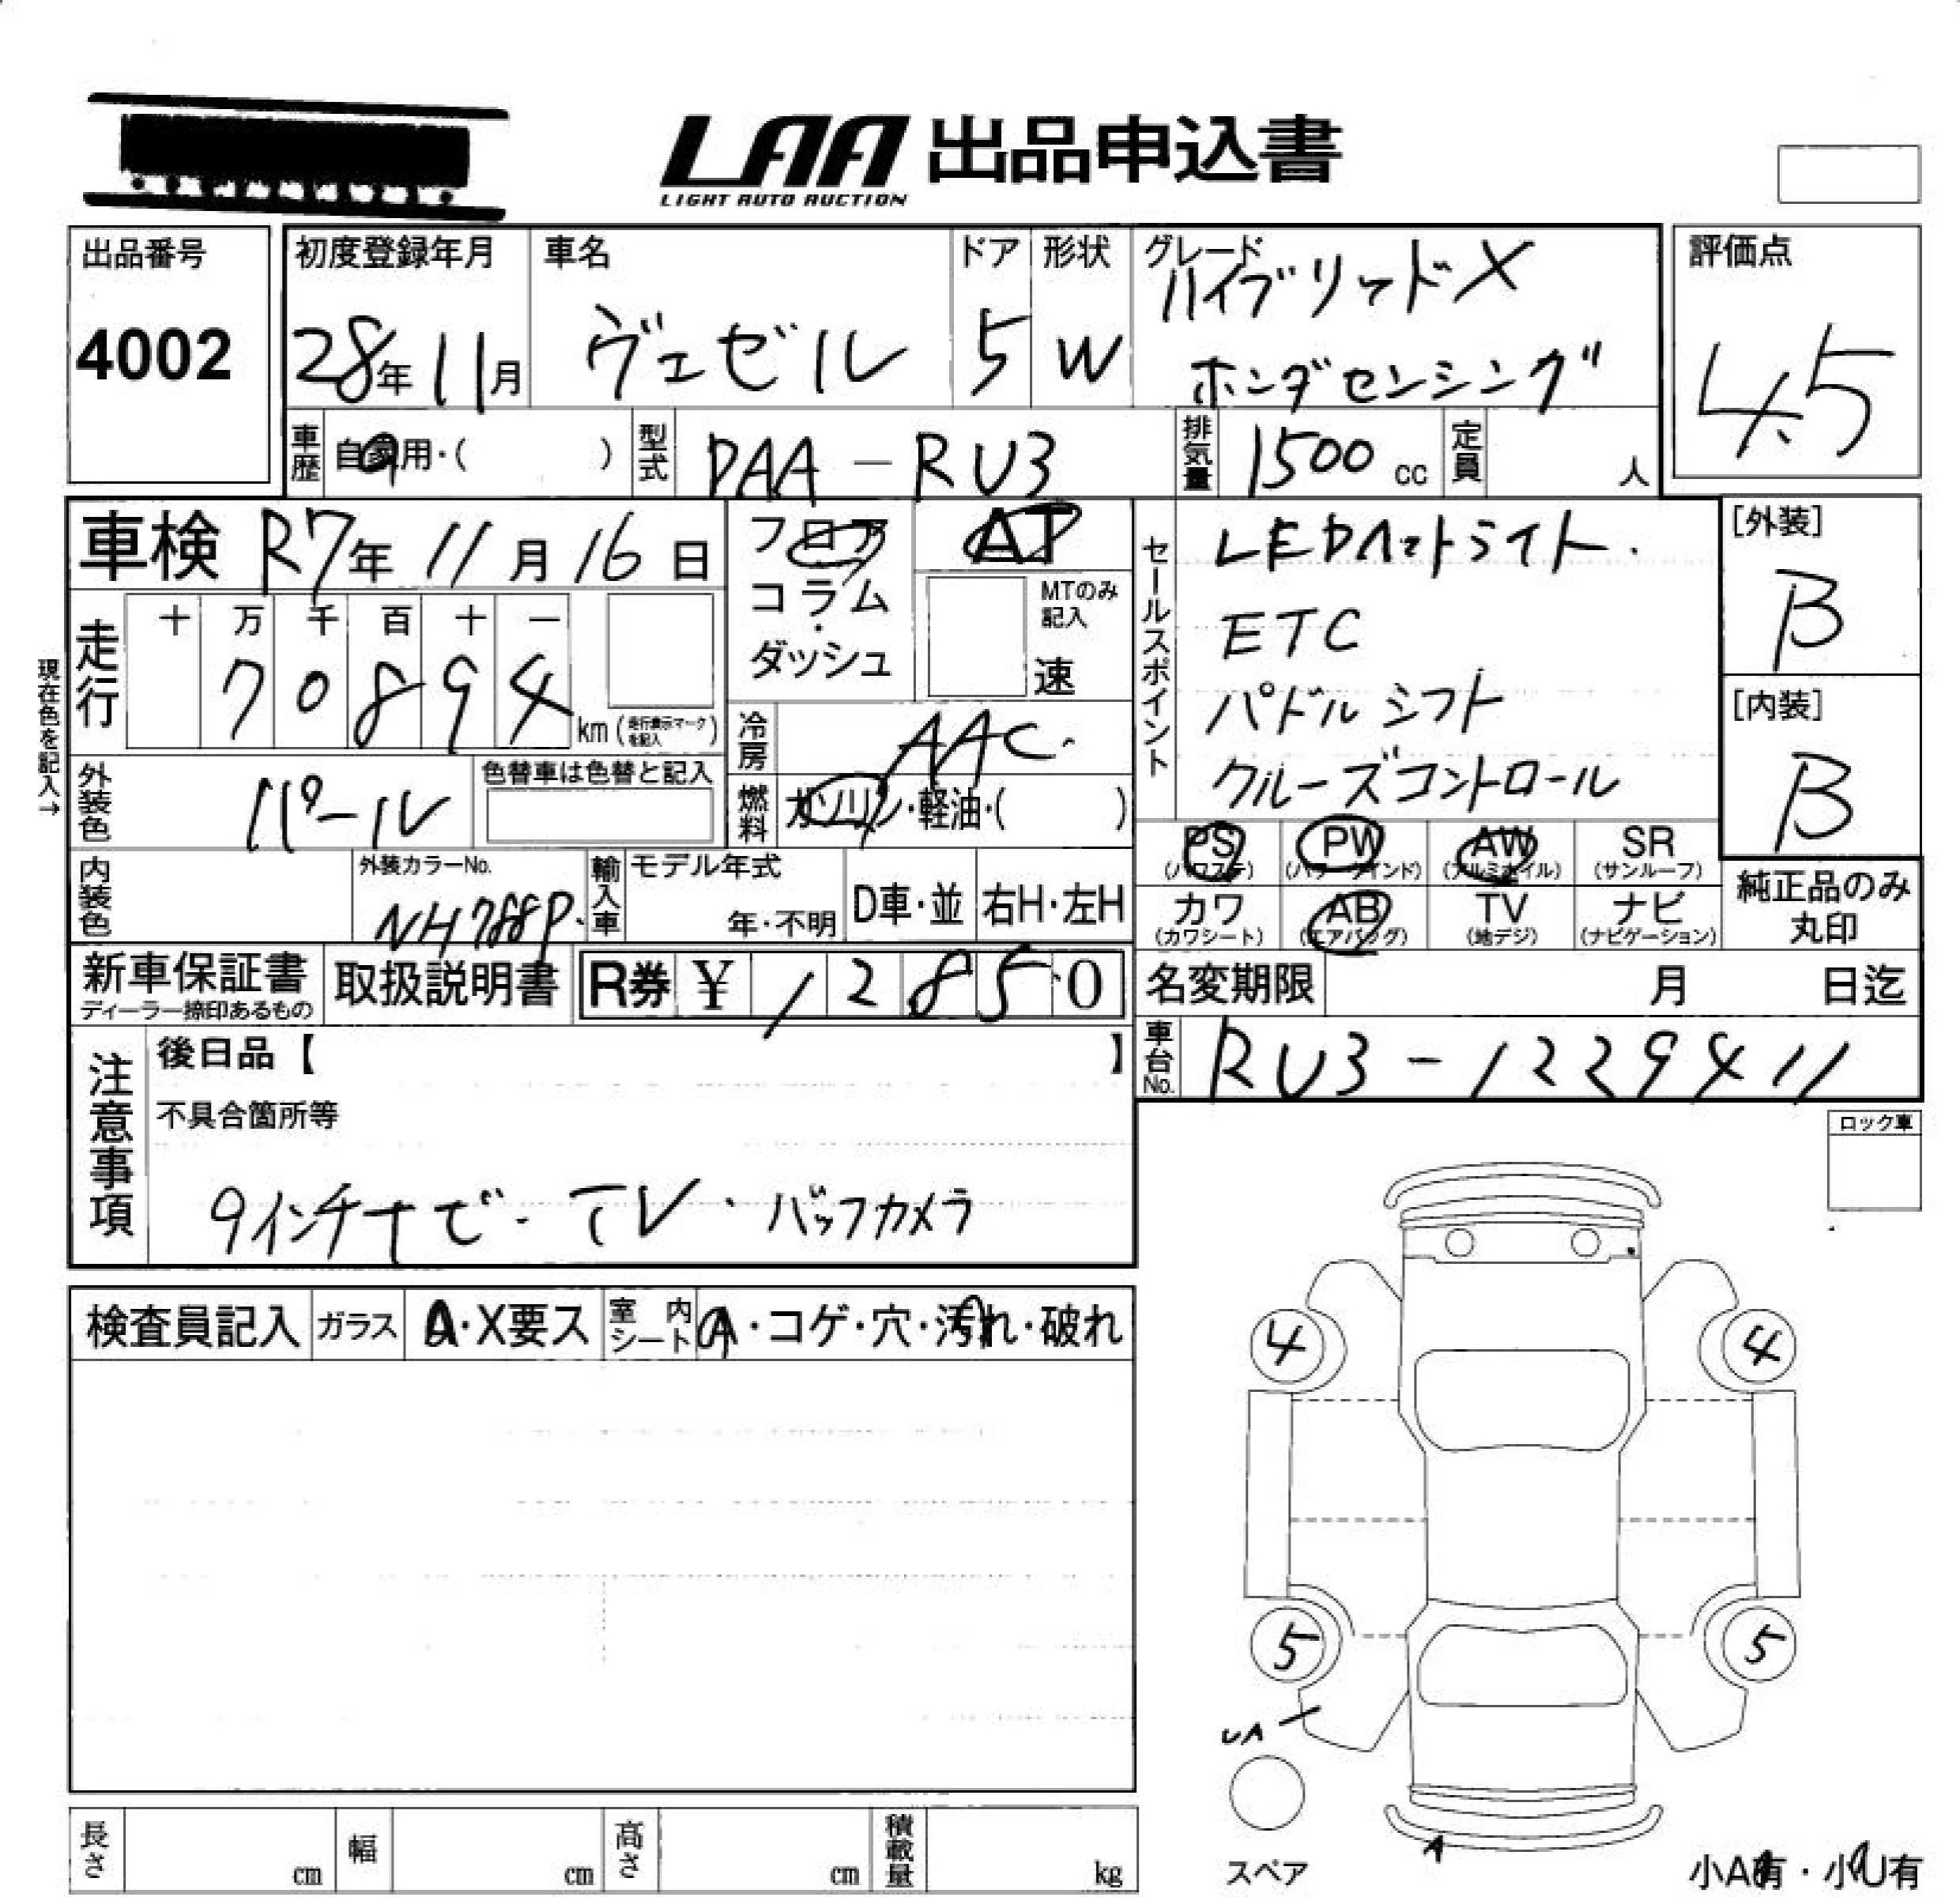 LAA 出品申込書
LIGHT AUTO AUCTION
出品番号
4002
初度登録年月
28年11月
車名
ヴェゼル
ドア
5
形状
W
グレード
ハイブリッドX
ホンダセンシング
評価点
4.5
車歴
自家用・( )
型式
DAA-RU3
排気量
1500 cc
定員
人
車検 R7年11月16日
フロア
コラム
・
ダッシュ
AT
MTのみ
記入
速
セールスポイント
LEDヘットライト.
ETC
パドルシフト
クルーズコントロール
[外装]
B
[内装]
B
現在色を記入→
走行
十 万 千 百 十 一
7 0 8 9 4
km (走行表示マークを記入)
冷房
AAC.
燃料
ガソリン・軽油・( )
外装色
パール
色替車は色替と記入
PS
(パワステ)
PW
(パワーウインド)
AW
(アルミホイル)
SR
(サンルーフ)
カワ
(カワシート)
AB
(エアバッグ)
TV
(地デジ)
ナビ
(ナビゲーション)
純正品のみ
丸印
内装色
外装カラーNo.
NH788P.
輸入車
モデル年式
年・不明
D車・並
右H・左H
新車保証書
ディーラー捺印あるもの
取扱説明書
R券 ¥ 12850
名変期限
月 日迄
車台No.
RU3-1229411
注意事項
後日品【 】
不具合箇所等
9インチナビ・TV・バックカメラ
ロック車
検査員記入
ガラス
A・X要ス
室内シート
A・コゲ・穴・汚れ・破れ
4
4
5
5
UA
A
スペア
小A有・小U有
長さ
cm
幅
cm
高さ
cm
積載量
kg